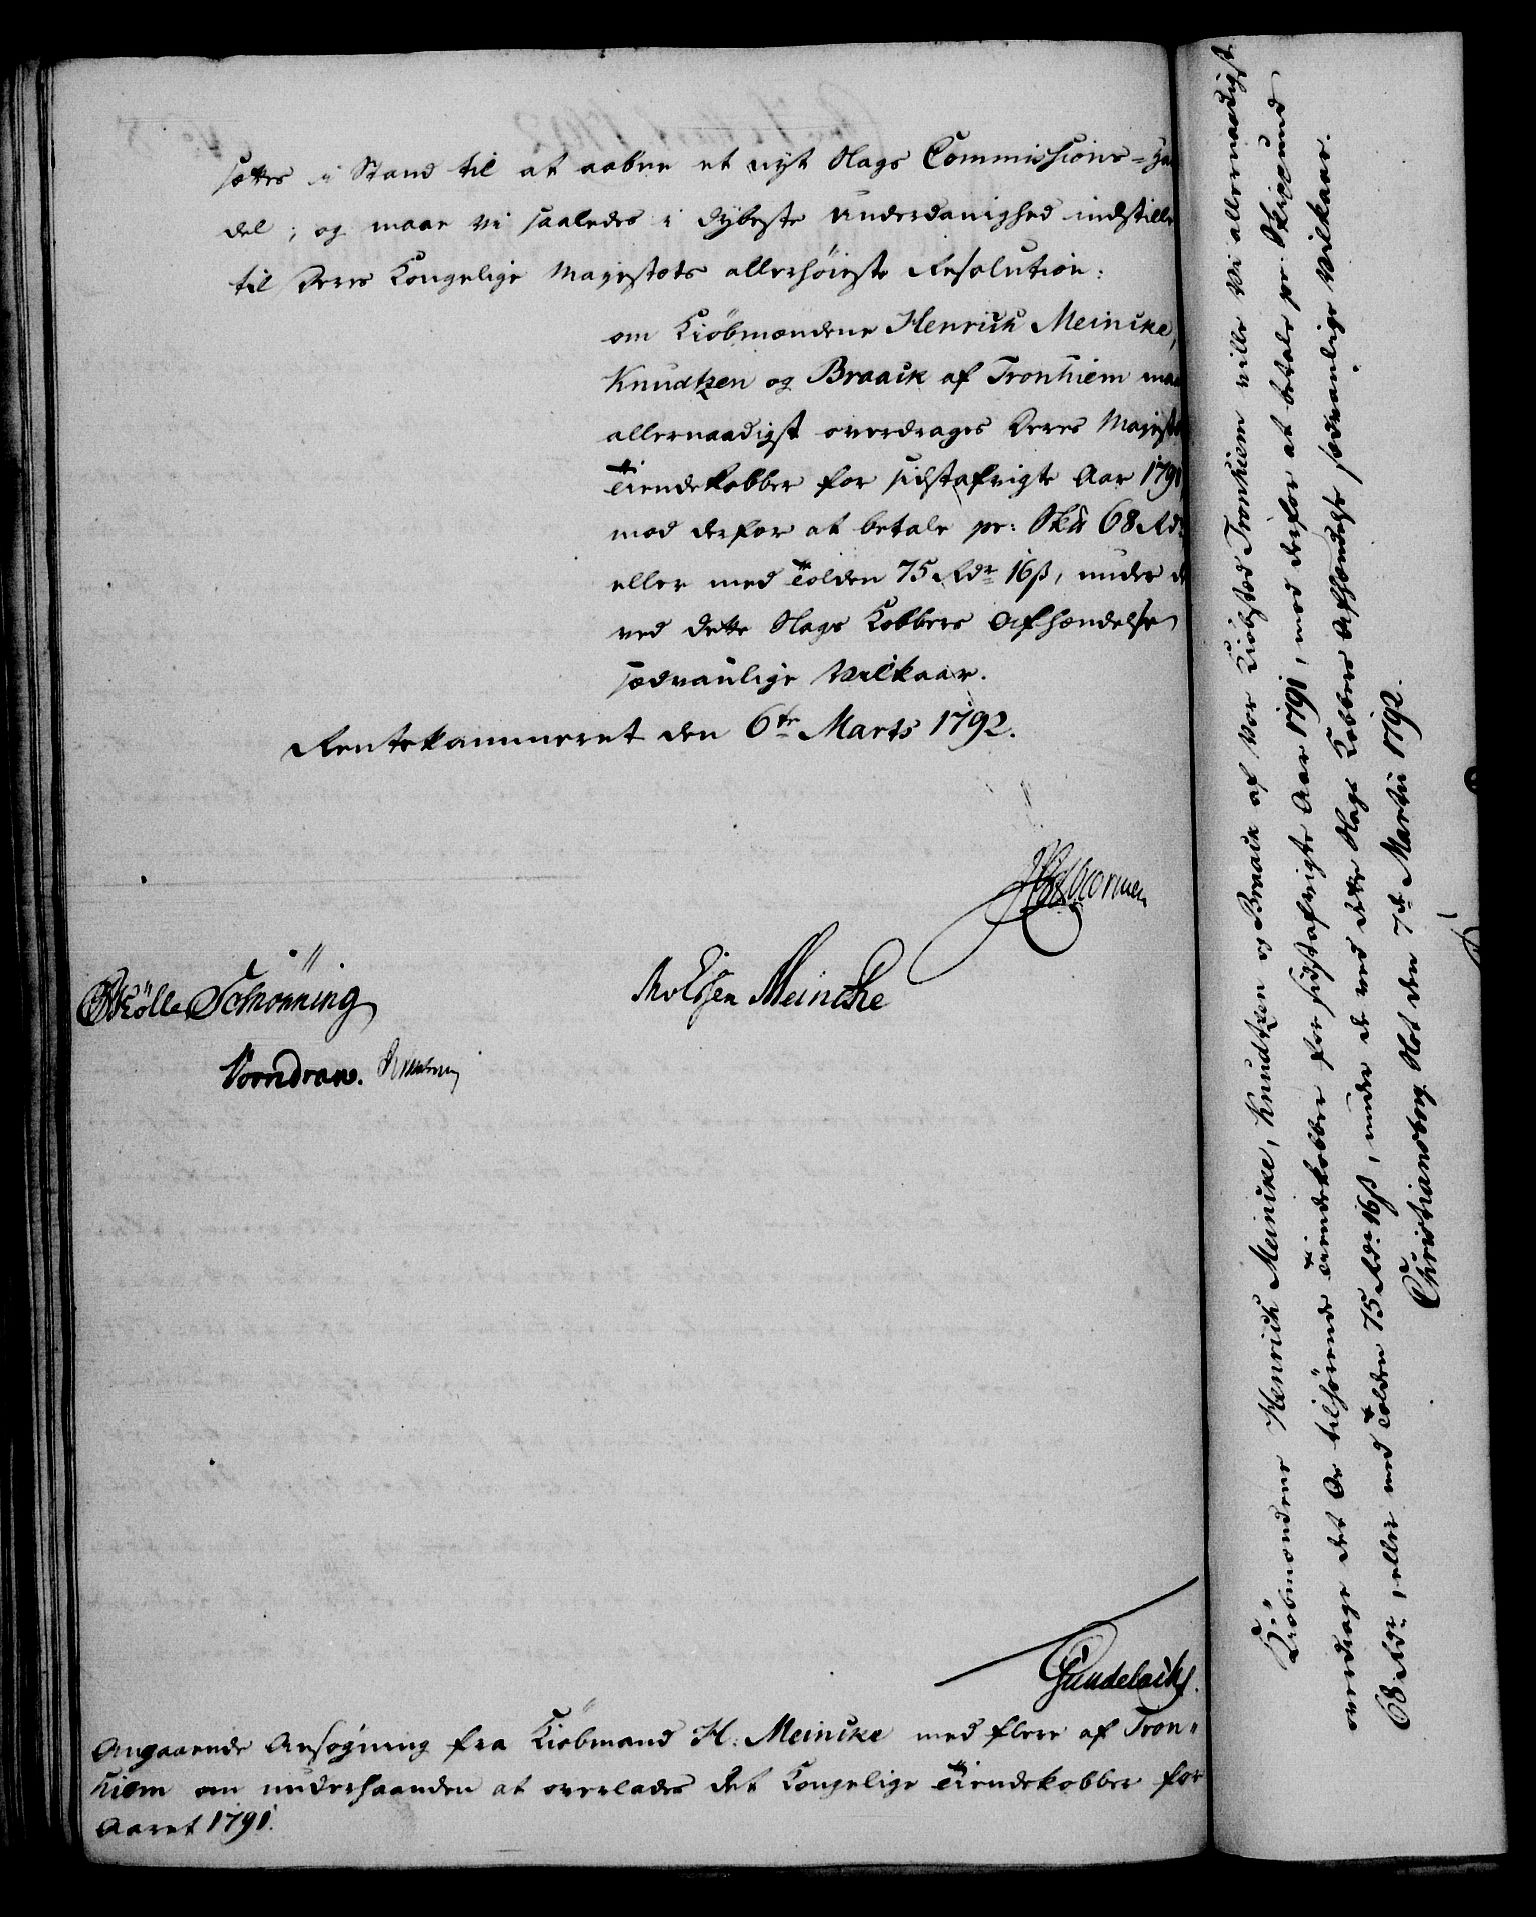 sættes i Stand til at aabne et nyt Slags Commissions-Han
del; og maae vi saaledes i dybeste Underdanighed indstille
til Deres Kongelige Majestæts allerhöieste Resolution:
om Kiöbmændene Henrich Meincke,
Knudtzen og Braack af Tronhiem maa
allernaadigst overdrages Deres Majestæts
Tiendekobber for sidstafvigte Aar 1791,
mod derfor at betale pr: Sk℔ 68 Rdr
eller med Tolden 75 Rdr 16 ß, under de
ved dette Slags Kobbers Afhændelse
sædvanlige Vilkaar.
Rentekammeret den 6te Marts 1792.
Schönning
Meincke
Vorndran.
Gundelach.
Angaaende Ansøgning fra Kiöbmand H: Meincke med flere af Tron-
hiem om underhaanden at overlades det Kongelige Tiendekobber for
Aaret 1791.
Kiöbmændene Henrich Meincke, Knudtzen og Braack af Vor Kiöbsted Tronhiem ville Vi allernaadigst
overdrage det Os tilhörende Tiendekobber for sidstafvigte Aar 1791, mod derfor at betale pr: Skippund
68 Rdr, eller med Tolden 75 Rdr 16 ß, under de ved dette Slags Kobbers Afhændelse sædvanlige Vilkaar.
Christiansborg Slot den 7de Martii 1792.